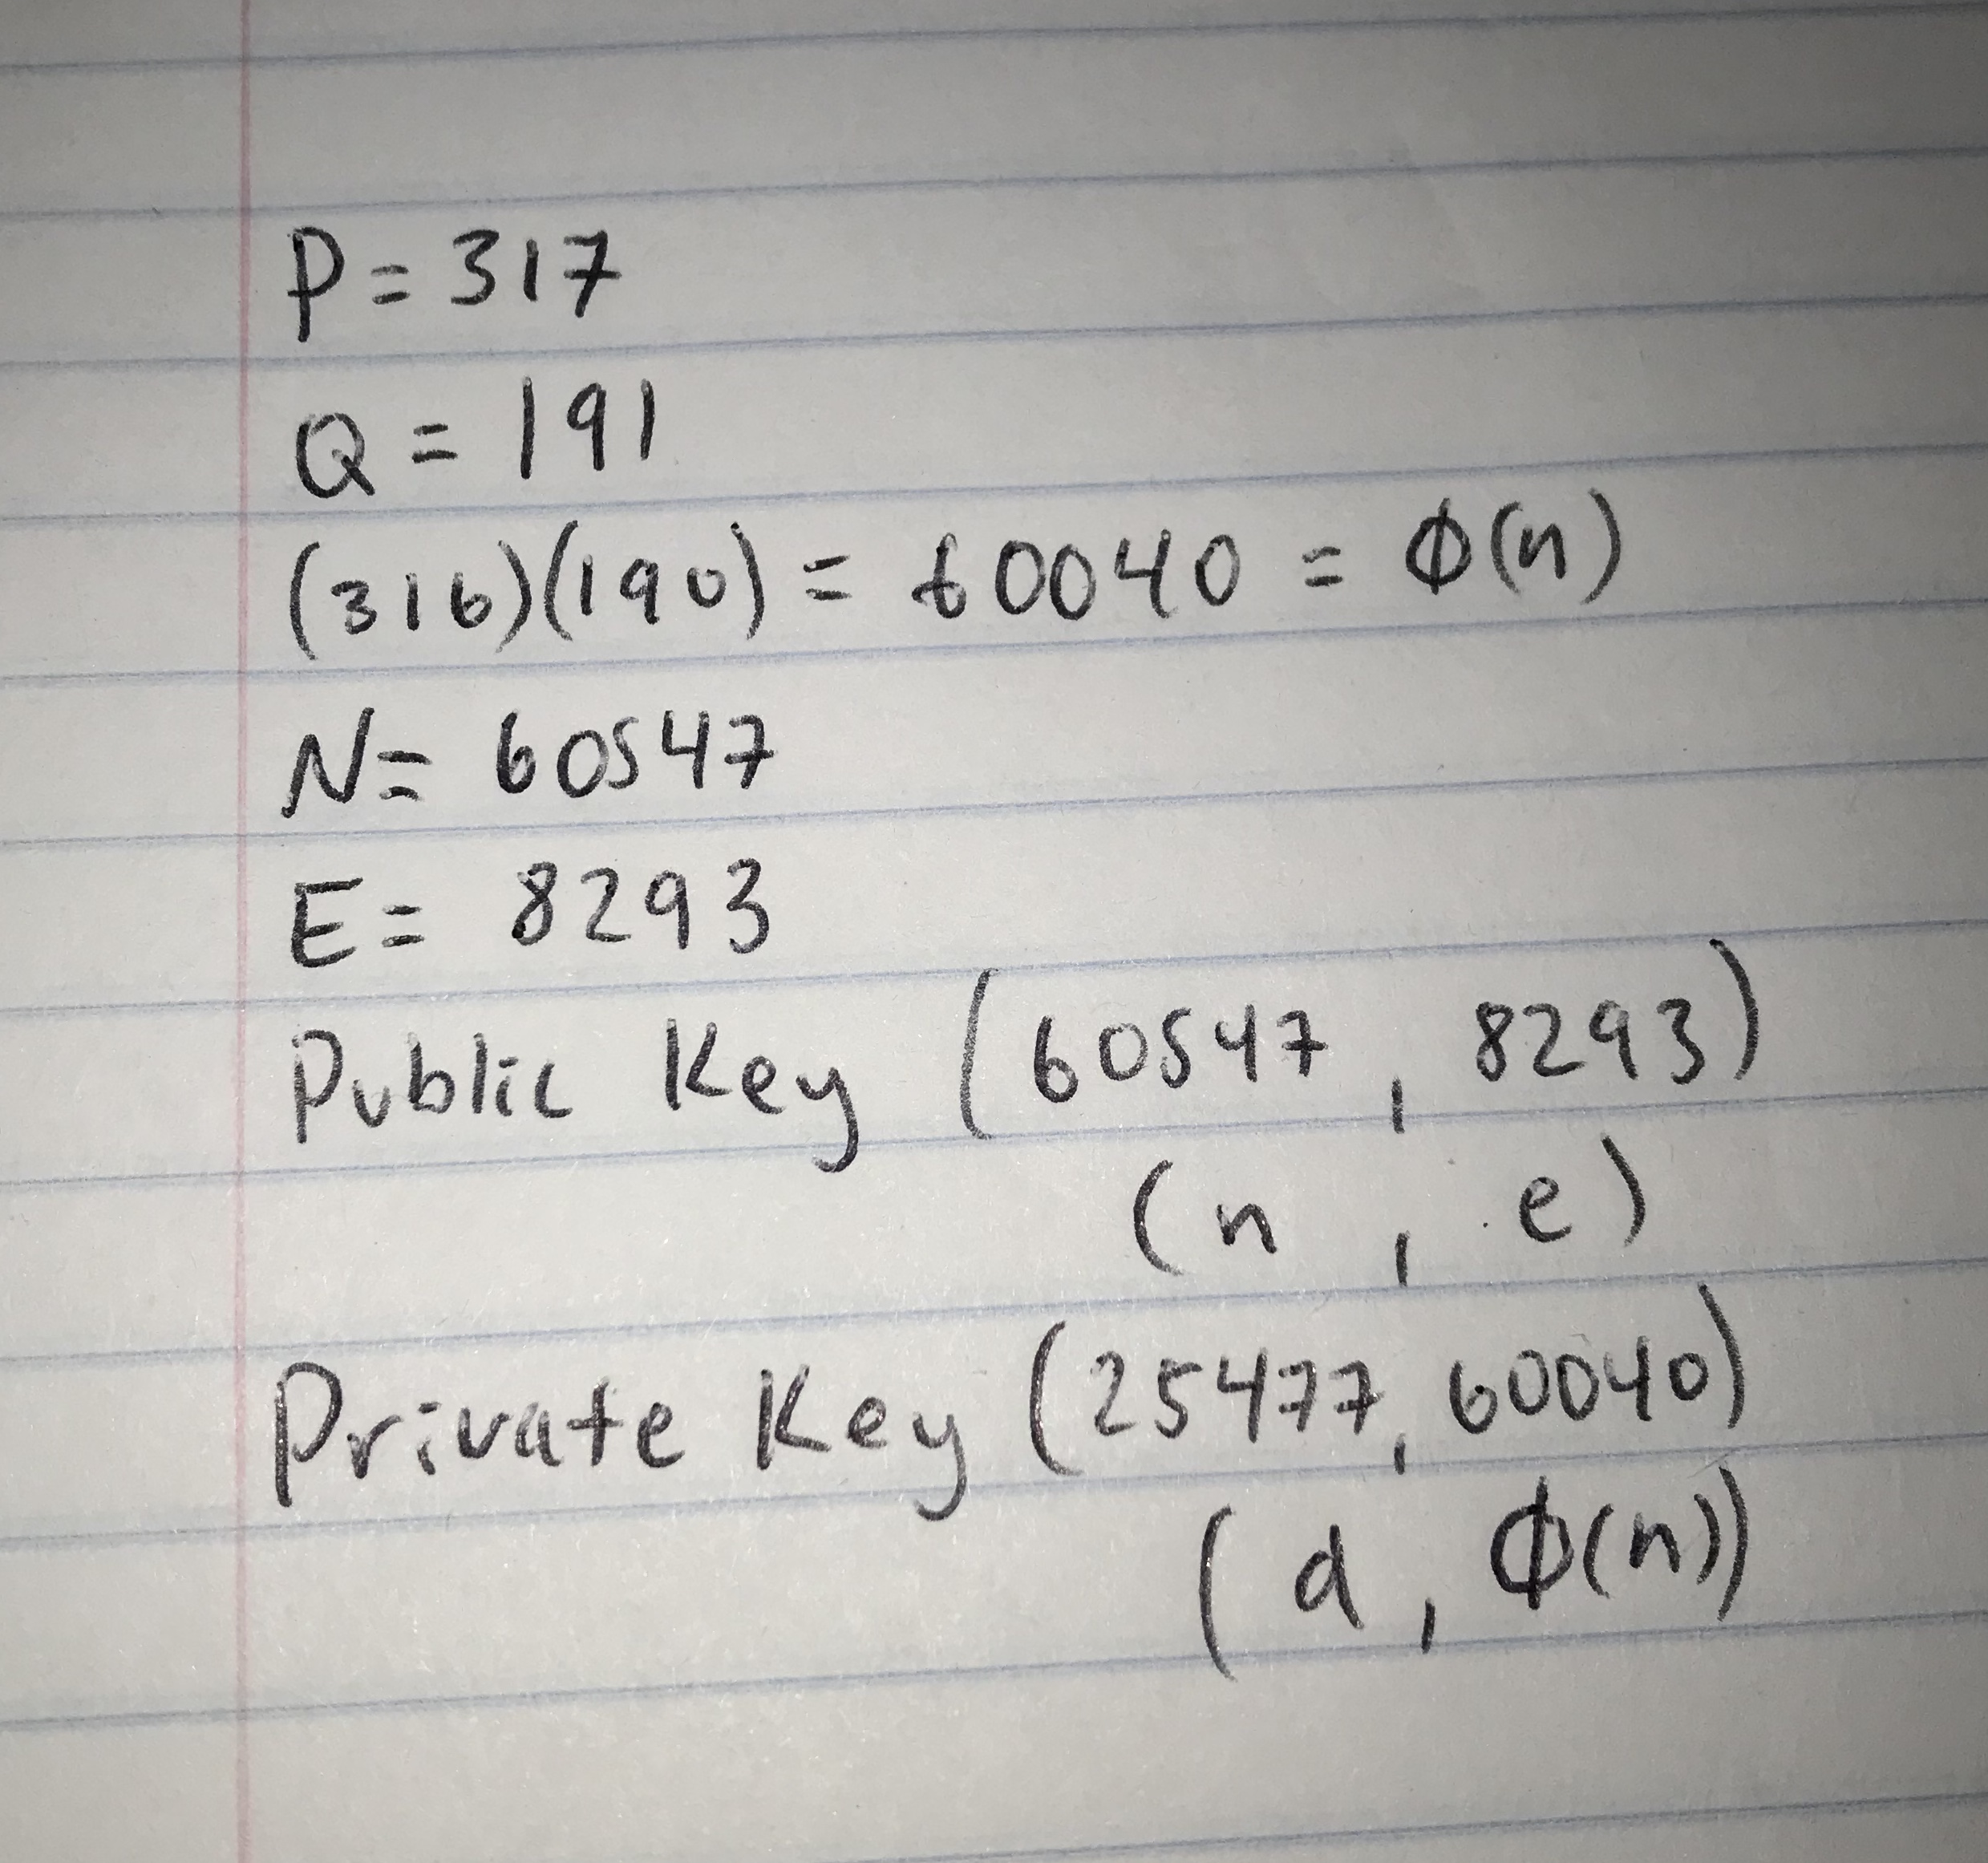 P = 317
Q = 191
(316)(190) = 60040 = Φ(n)
N = 60547
E = 8293
Public Key (60547, 8293)
(n, e)
Private Key (25477, 60040)
(d, Φ(n))